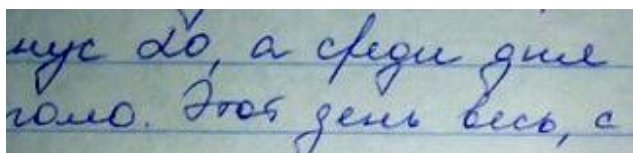 нус 20, а среди дня
голо. Этот день весь, с